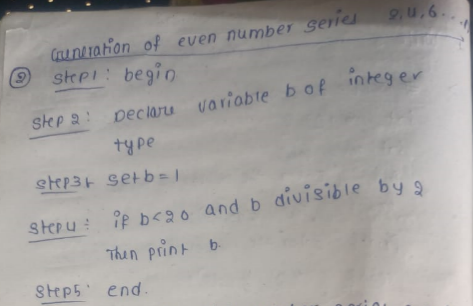 Generation of even number series 2,4,6...
② Step1: begin
Step 2: Declare variable b of integer
type
Step3: set b=1
Step4: if b<20 and b divisible by 2
Then print b.
Step5: end.